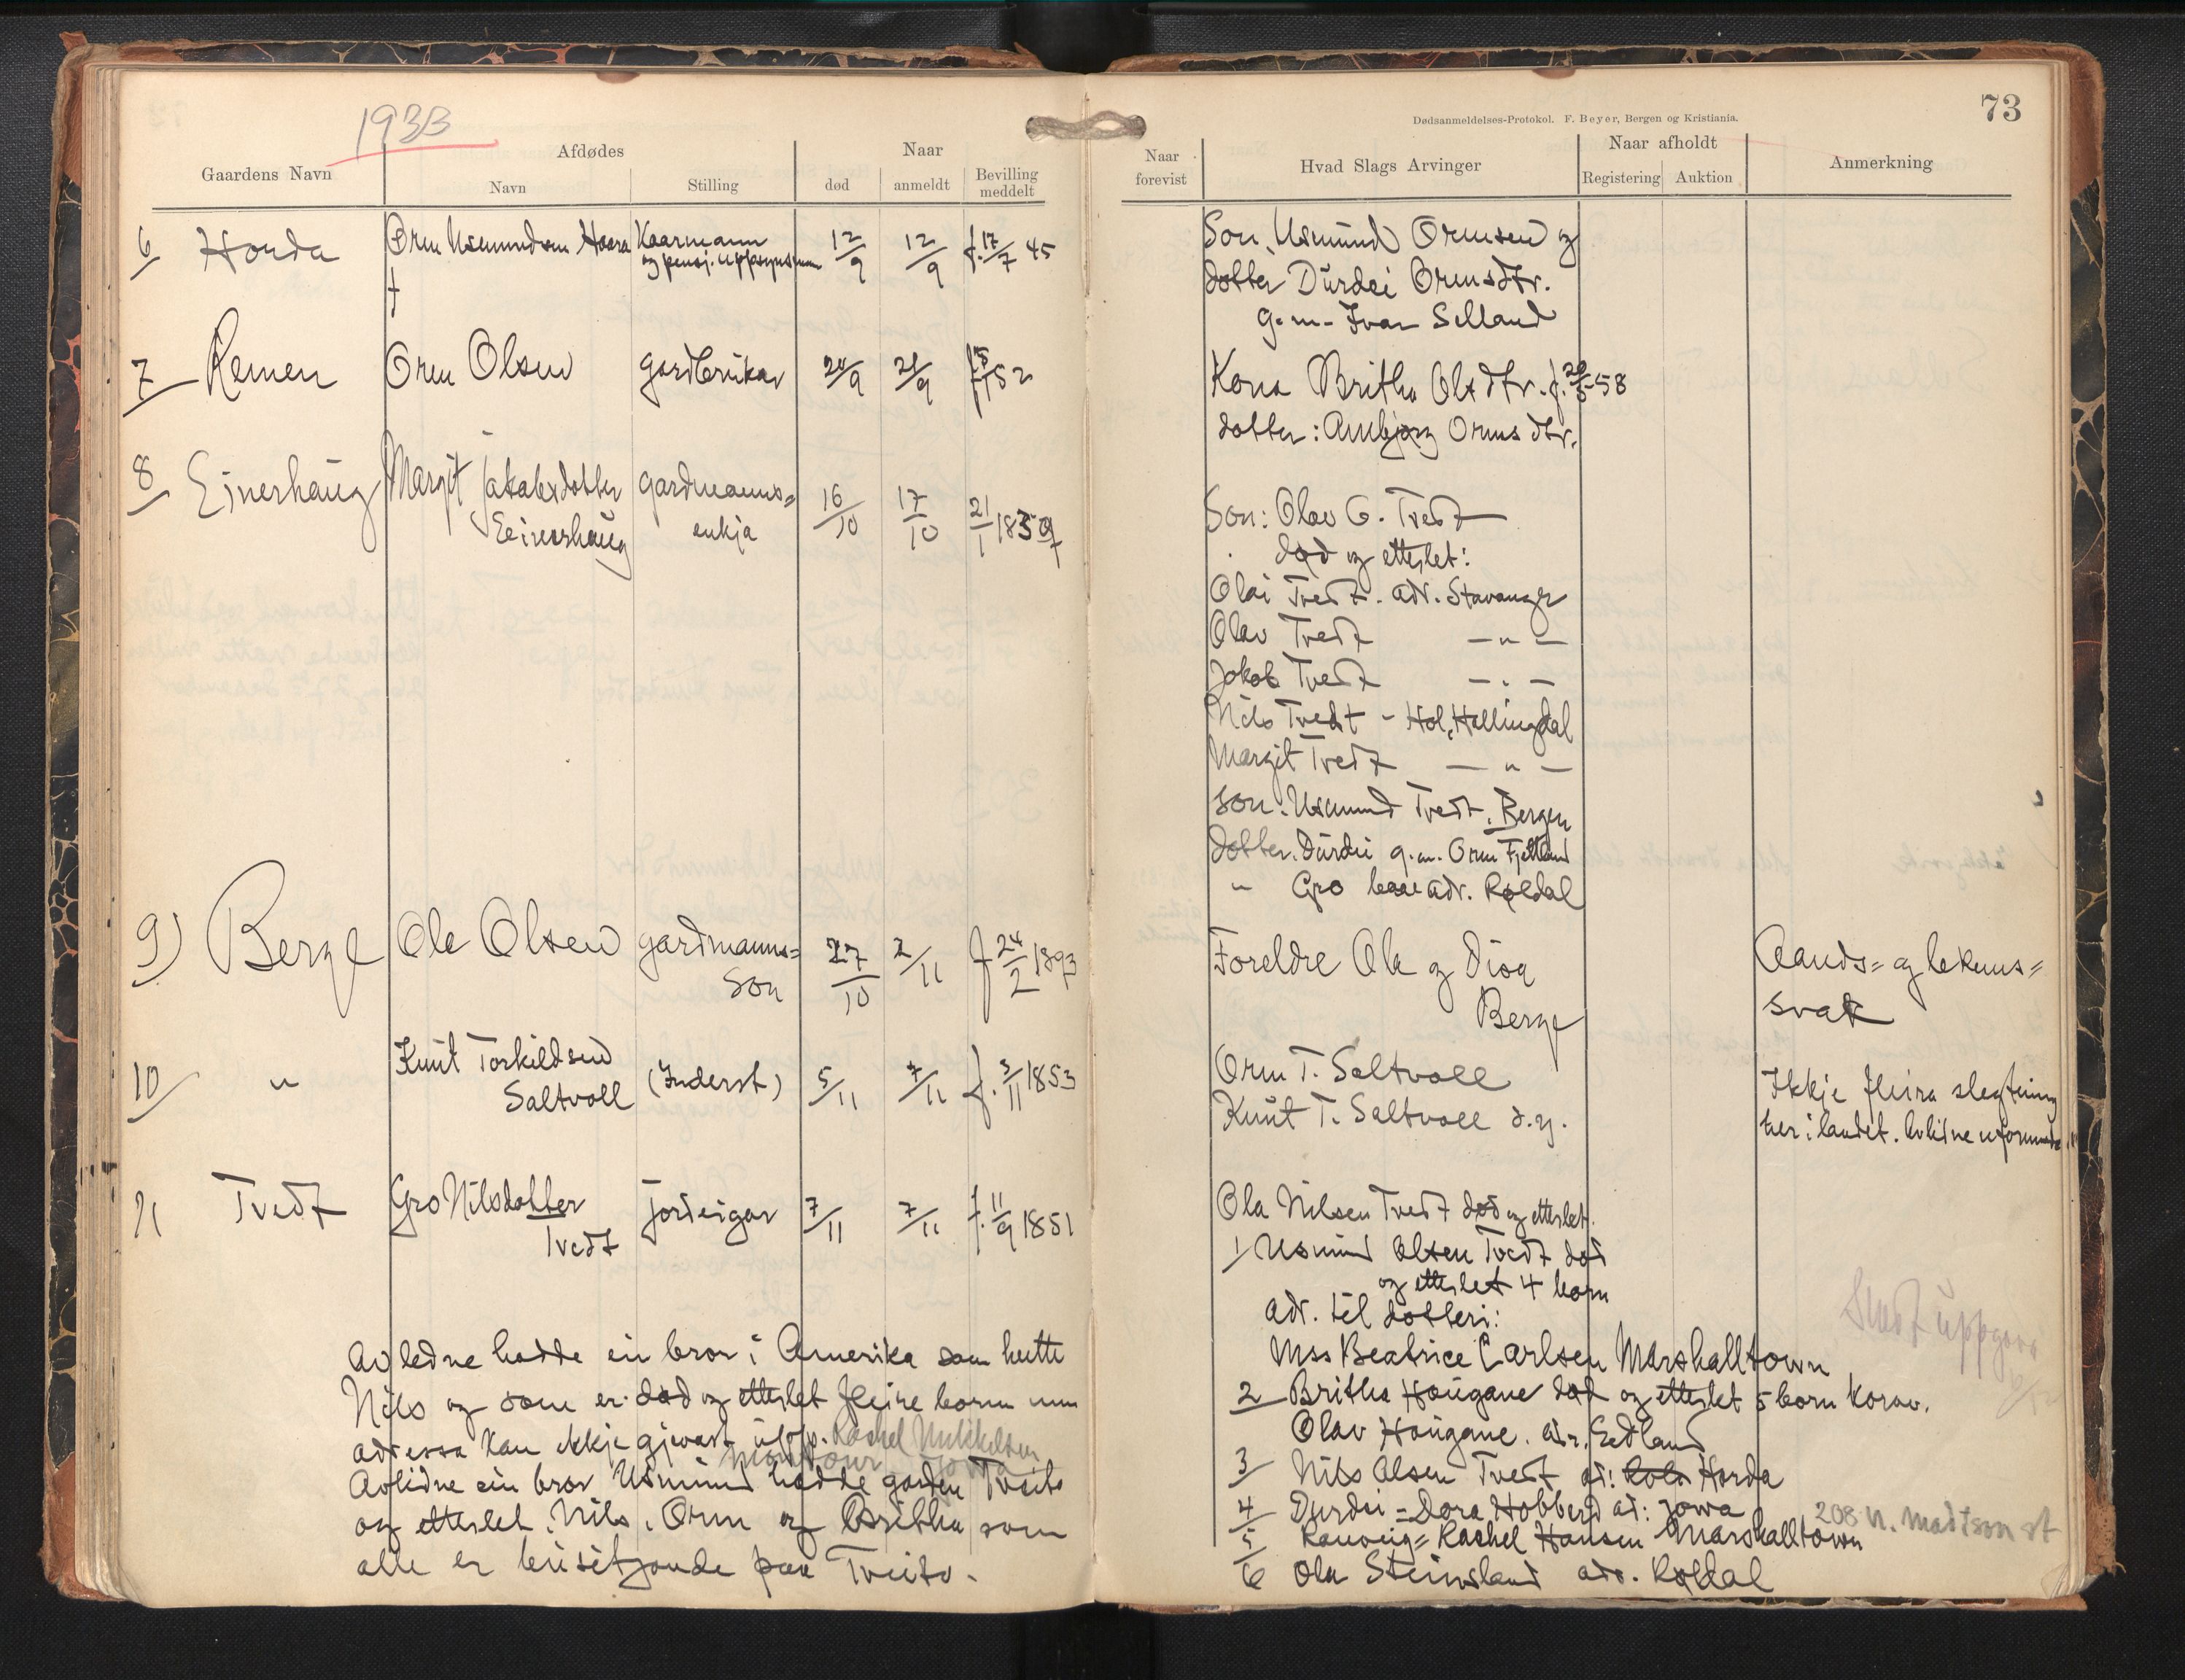 1933
73
Dødsanmeldelses-Protokol. F. Beyer, Bergen og Kristiania.
Gaardens Navn
Afdødes
Navn
Stilling
Naar
død
anmeldt
Bevilling meddelt
Naar forevist
Hvad Slags Arvinger
Naar afholdt
Registering
Auktion
Anmerkning
6 Horda Orm Usmundsen Haara Kaarmann 12/9 12/9 f. 17/7 45
og pensj. uppsynsman
†
Son, Usmund Ormsen og
dotter Durdei Ormsdtr.
g.m. Ivar Selland
7 Remen Orm Olsen gardbrukar 20/9 21/9 52
Kona Britha Olsdtr. f. 58
dotter: Ormsdtr.
8 Einerhaug Margit Jakobsdotter gardmanns= 16/10 17/10 21/1 1837
enkja
Son: Olav G. Tvedt
død og etterlet:
Olai Tvedt. adr. Stavanger
Olav Tvedt — " —
Jakob Tvedt — " —
Nils Tvedt - Hol, Hallingdal
Margit Tvedt — " —
son. Usmund Tvedt. Bergen
dotter. Durdei g.m. Orm Fjetland
" Gro adr. Røldal
9) Berge Ole Olsen gardmanns= 27/10 2/11 f 24/2 1893
son
Foreldre Ola og
Berge
Aands= og lekams=
svak
10 " Knut Torkildsen (Inderst) 5/11 7/11 f. 3/11 1853
Saltvoll
Orm T. Saltvoll
Knut T. Saltvoll d.y.
Ikkje fleira slegtning
her i landet. Avlidne
11 Tvedt Gro Nilsdotter jordeigar 7/11 7/11 f. 11/9 1851
Tvedt
Ola Nilsen Tvedt død og etterlet.
1 Usmund Olsen Tvedt død
og etterlet 4 born
adr. til dotteri:
Mss Beatrice Carlsen Marshalltown
2 Britha Haugane død og etterlet 5 born korav.
Olav Haugane. adr.
3 Nils Olsen Tvedt ad: Horda
4 Durdei = Dora Hobberd ad: Jowa
208 N. Madison st
5 Ranveig = Rachel Hansen Marshalltown
6 Ola Steinsland adr. Røldal
Avledne hadde ein bror i Amerika som heitte
Nils og som er død og etterlet fleire born men
adressa kan ikkje gjevast upp. Rachel
Avlidne ein bror Usmund hadde garden Tveito
og etterlet. Nils, Orm og Britha som
alle er busitjande paa Tveito.